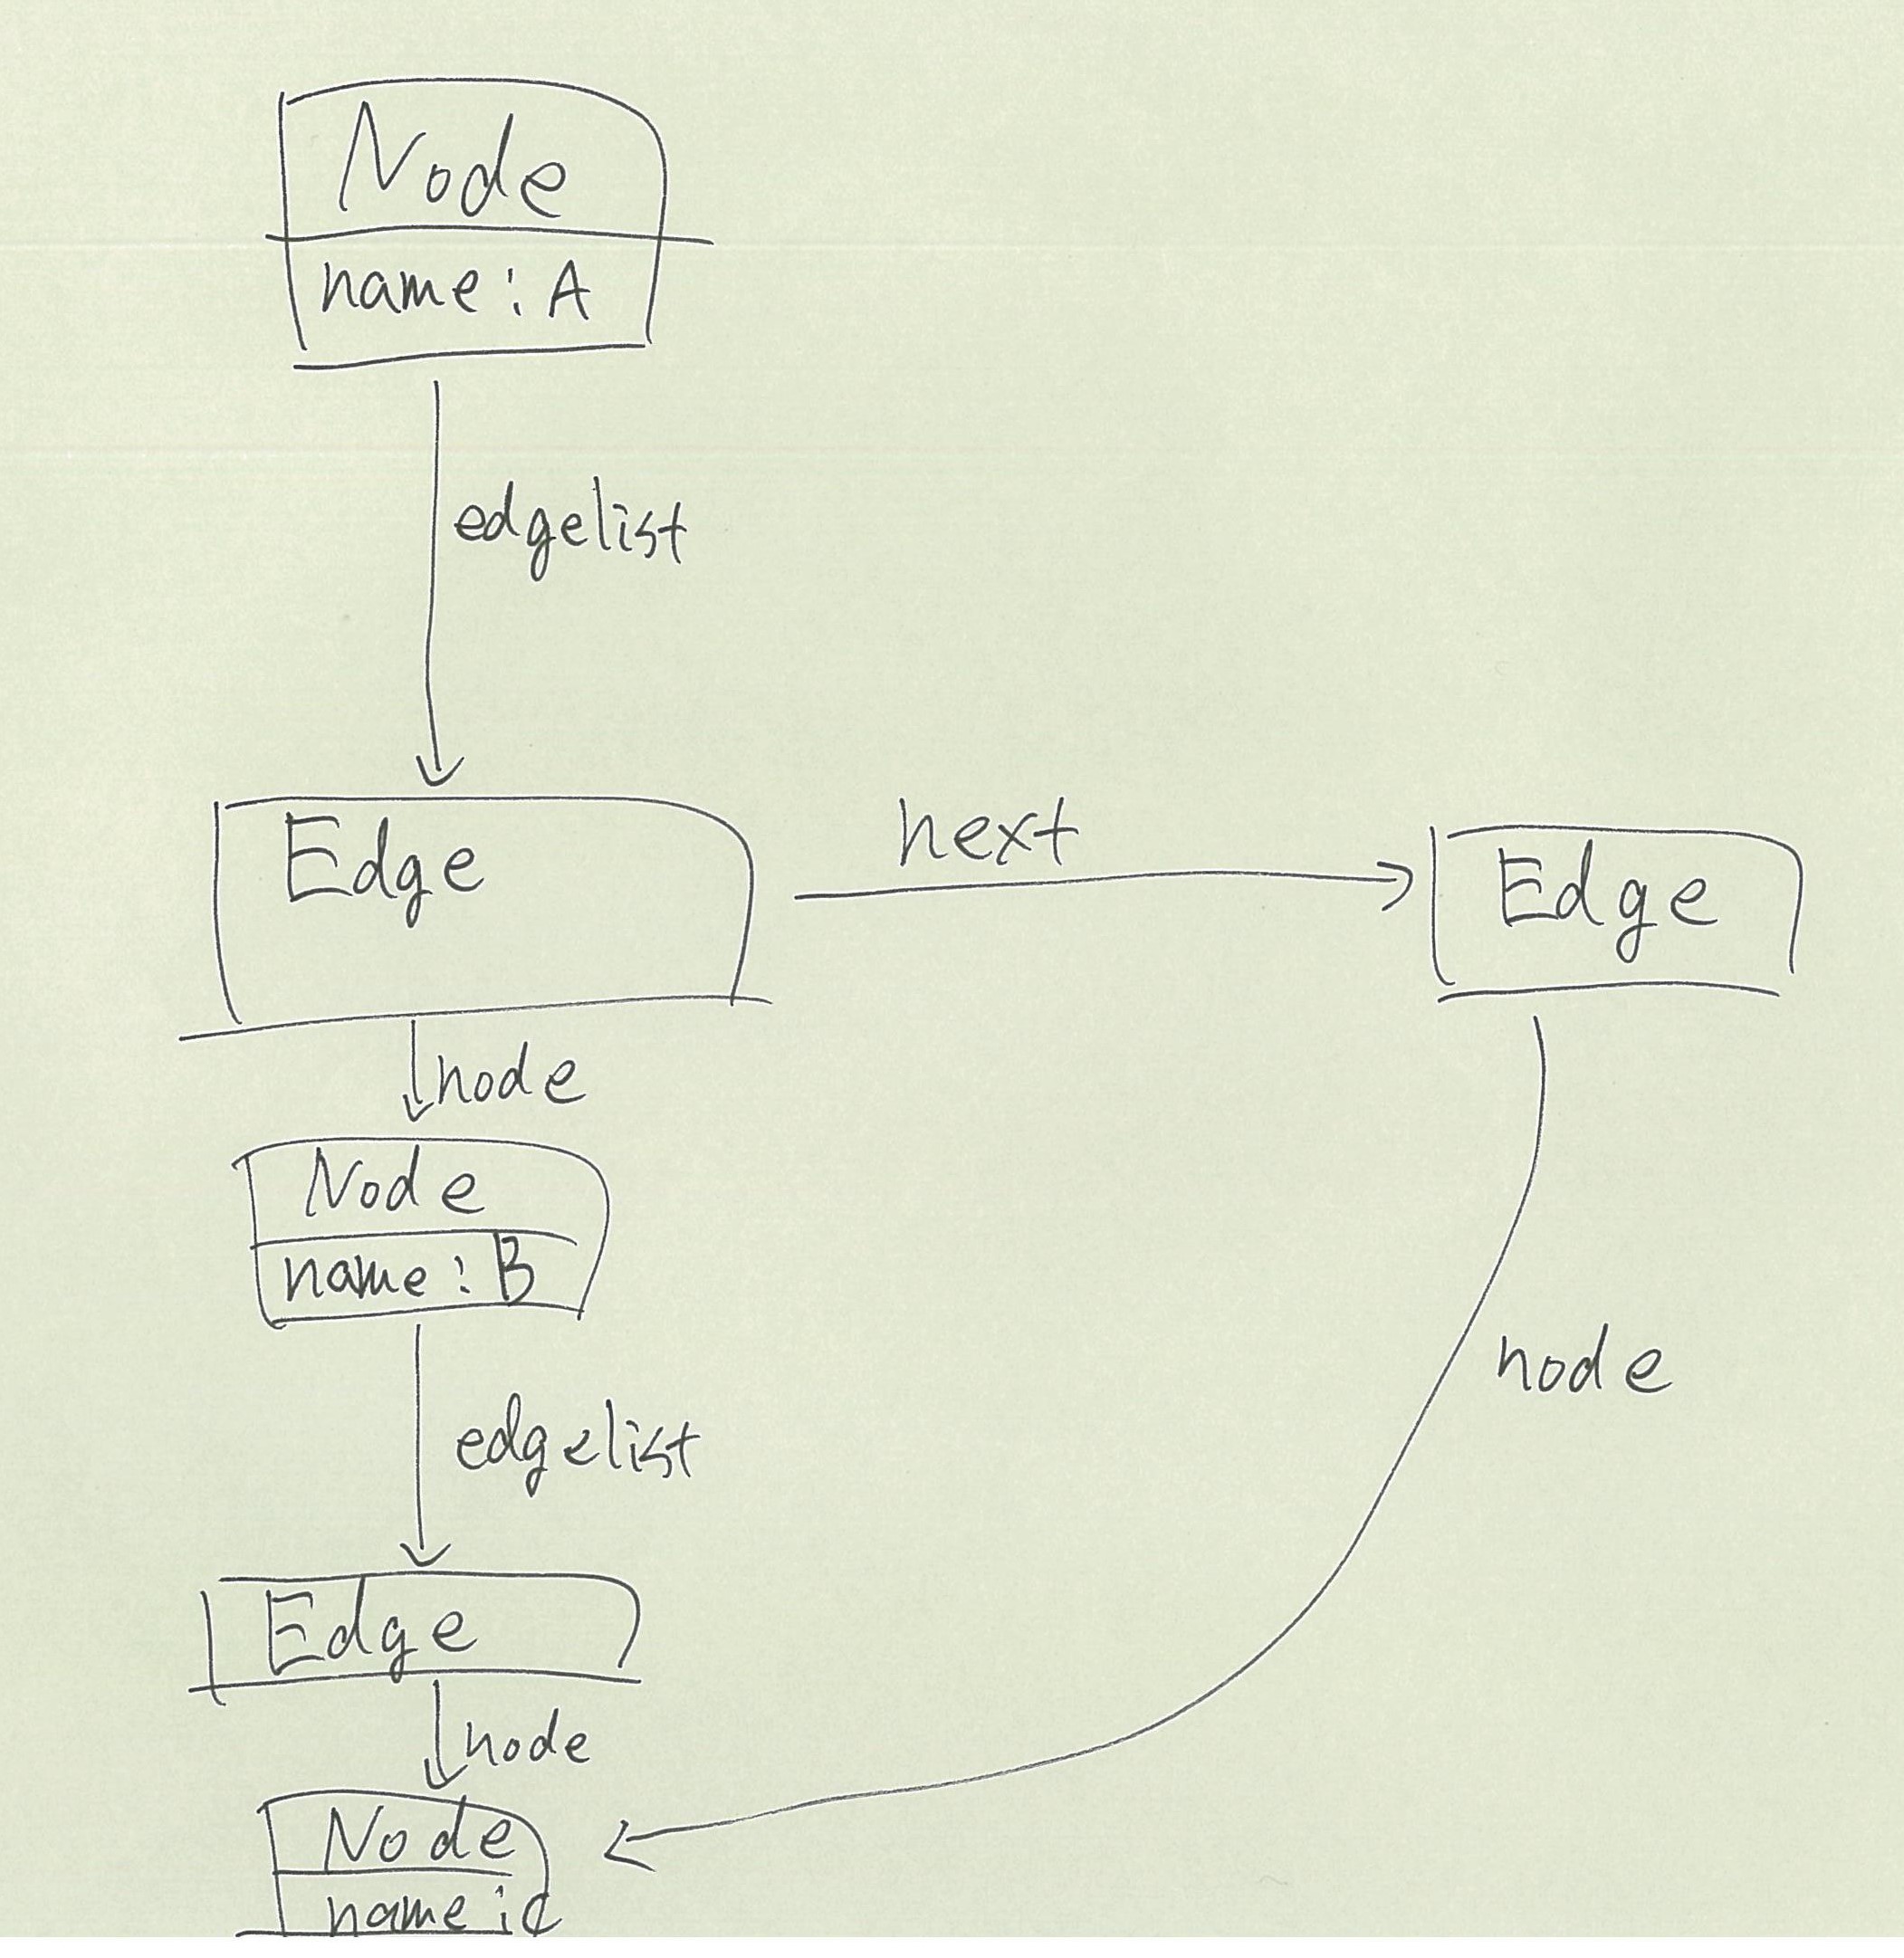 Node
name: A
edgelist
Edge
next
Edge
node
Node
name: B
node
edgelist
Edge
node
Node
name: C